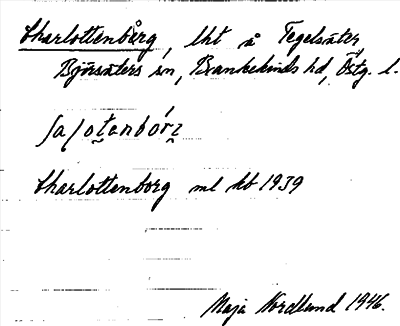 Charlottenbårg, lht å Tegelsäter,
Björsäters sn, Bankekinds hd, Östg. l.
ʃaʃotenbórz
Charlottenborg ml kb 1939
Maja Nordlund 1946.